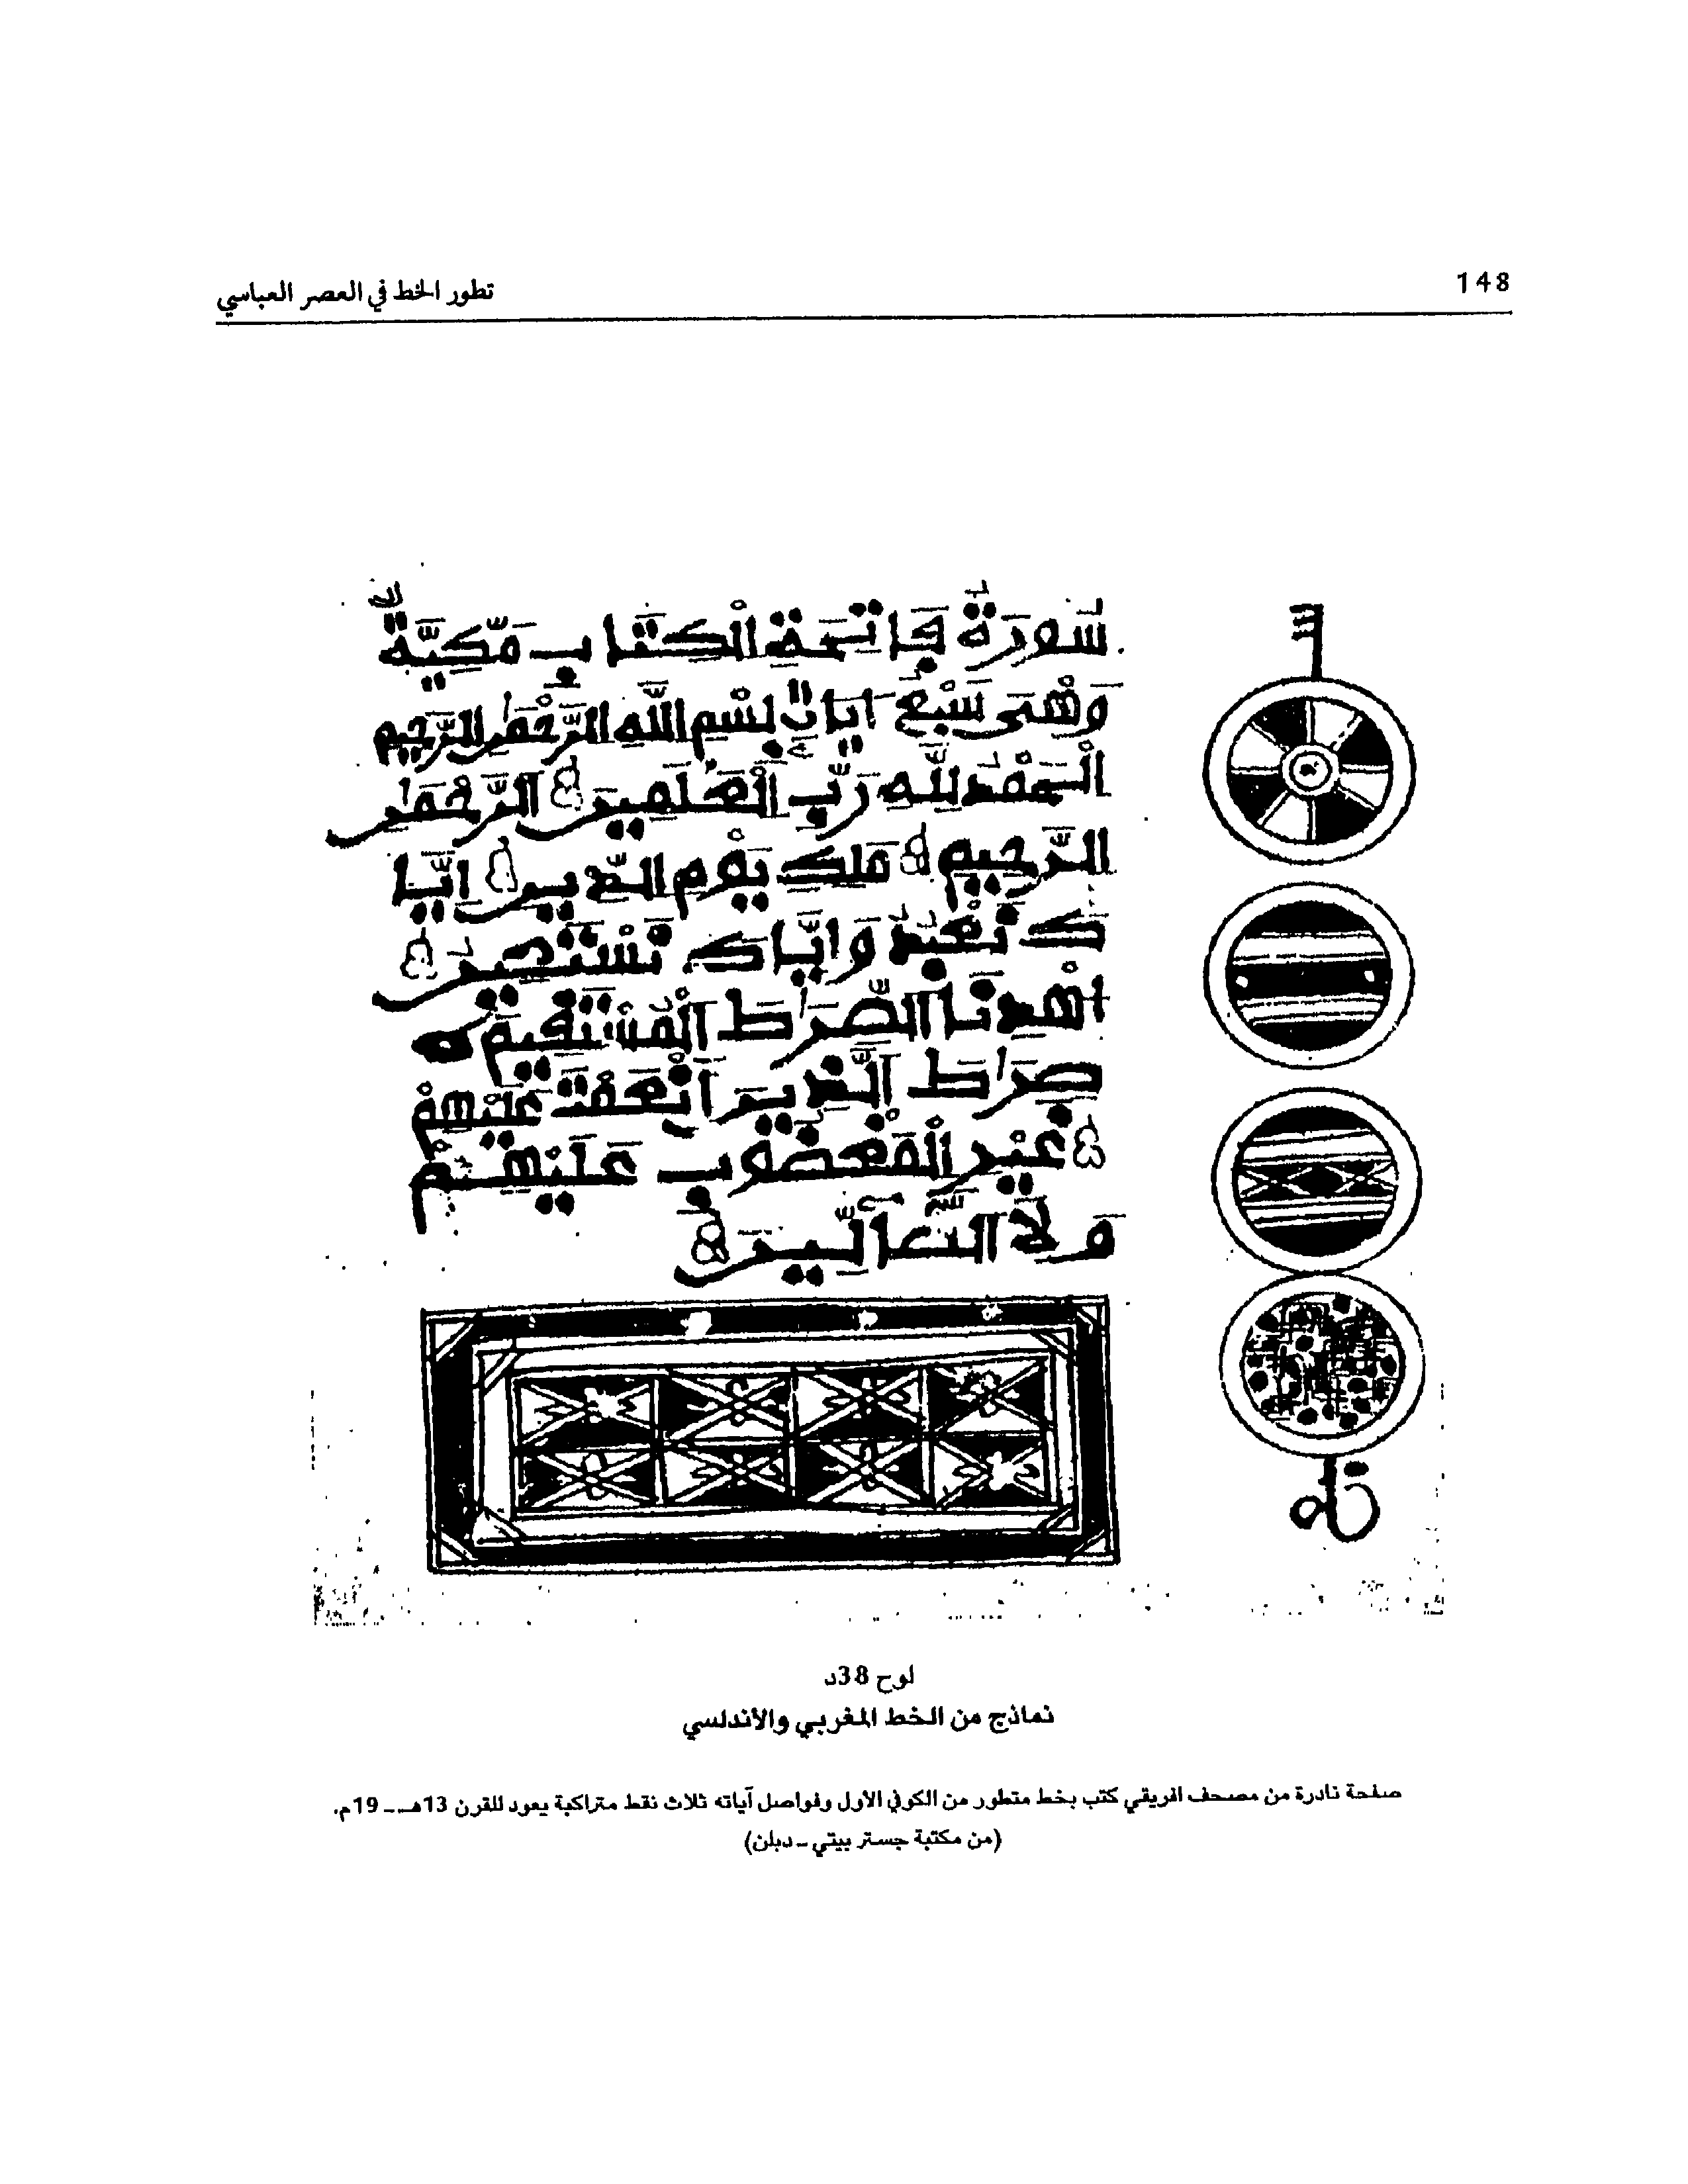 148
تطور الخط في العصر العباسي
سورة فاتحة الكتاب مكية
وهى سبع ايات بسم الله الرحمن الرحيم
الحمد لله رب العلمين الرحمن
الرحيم ملك يوم الدين ايا
ك نعبد واياك نستعين
اهدنا الصراط المستقيم
صراط الذين انعمت عليهم
غير المغضوب عليهم
ولا الضالين
لوح 38د
نماذج من الخط المغربي والأندلسي
صفحة نادرة من مصحف افريقي كتب بخط متطور من الكوفي الأول وفواصل آياته ثلاث نقط متراكبة يعود للقرن 13هـ ـ 19م.
(من مكتبة جستر بيتي ـ دبلن)